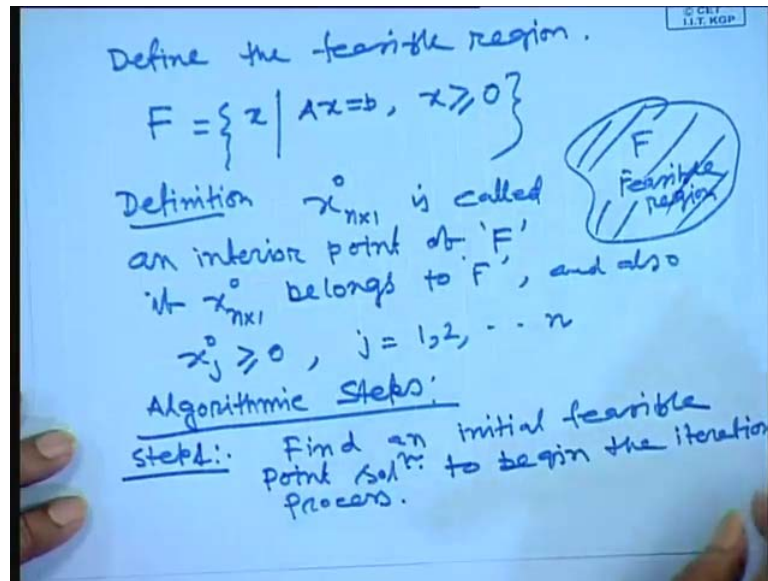 © CET
I.I.T. KGP
Define the feasible region.
F = { x | Ax=b, x ≥ 0 }
F
Feasible
region
Definition x⁰ₙₓ₁ is called
an interior point of 'F'
if x⁰ₙₓ₁ belongs to 'F', and also
x⁰ⱼ ≥ 0, j = 1,2, .. n
Algorithmic Steps:
Step1:. Find an initial feasible
point solⁿ. to begin the iteration
process.